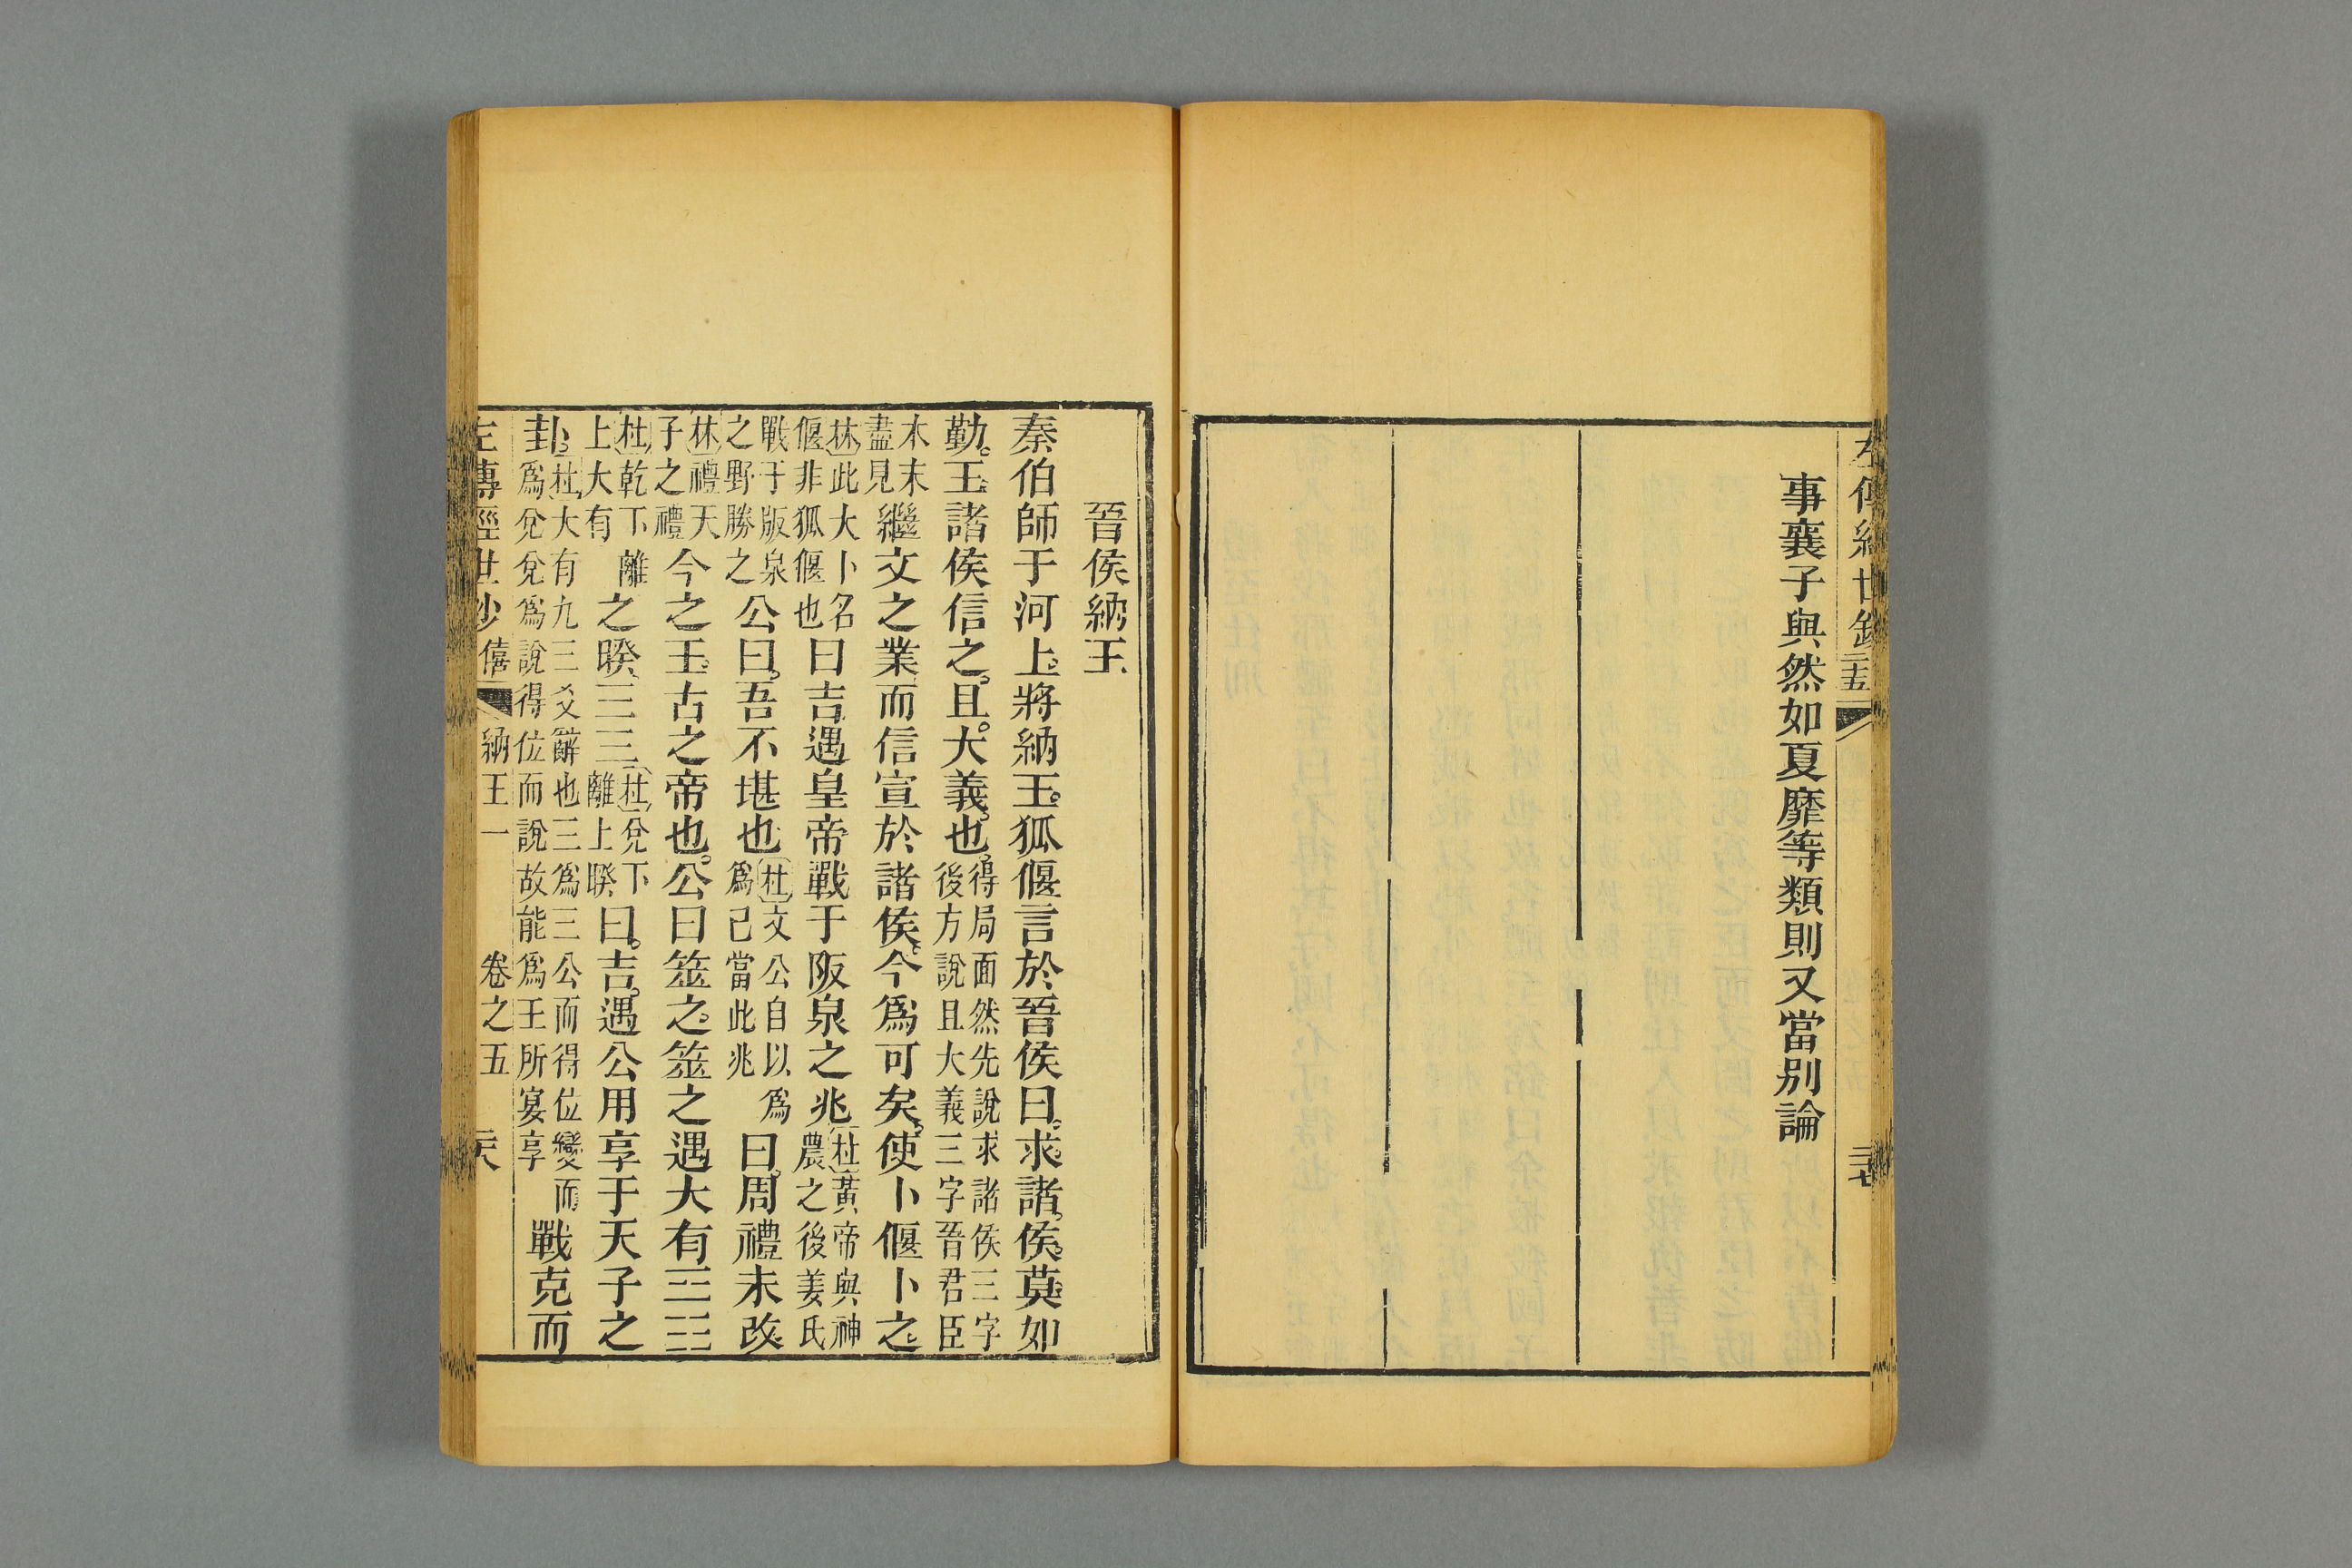 事襄子與然如夏靡等類則又當別論
晉侯納王
秦伯師于河上將納王狐偃言於晉侯曰求諸侯莫如
勤王諸侯信之且大義也得局面然先說求諸侯三字後方說且大義三字晉君臣
本末盡見繼文之業而信宣於諸侯今爲可矣使卜偃卜之
林此大卜名偃非狐偃也曰吉遇皇帝戰于阪泉之兆杜黃帝與神農之後姜氏
戰于版泉之野勝之公曰吾不堪也杜文公自以爲爲己當此兆曰周禮未改
林禮天子之禮今之王古之帝也公曰筮之筮之遇大有三三
杜乾下離上大有之睽三三杜兌下離上睽曰吉遇公用享于天子之
卦杜大有九三爻辭也三爲三公而得位變而爲兌兌爲說得位而說故能爲王所宴享戰克而
左傳經世鈔 僖 納王一 卷之五